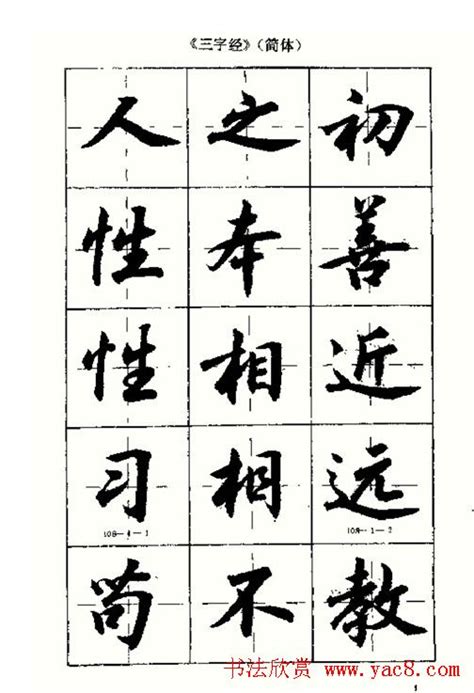 《三字经》(简体)
人之初
性本善
性相近
习相远
108—4—1 108—1—2
苟不教
书法欣赏 www.yac8.com
1